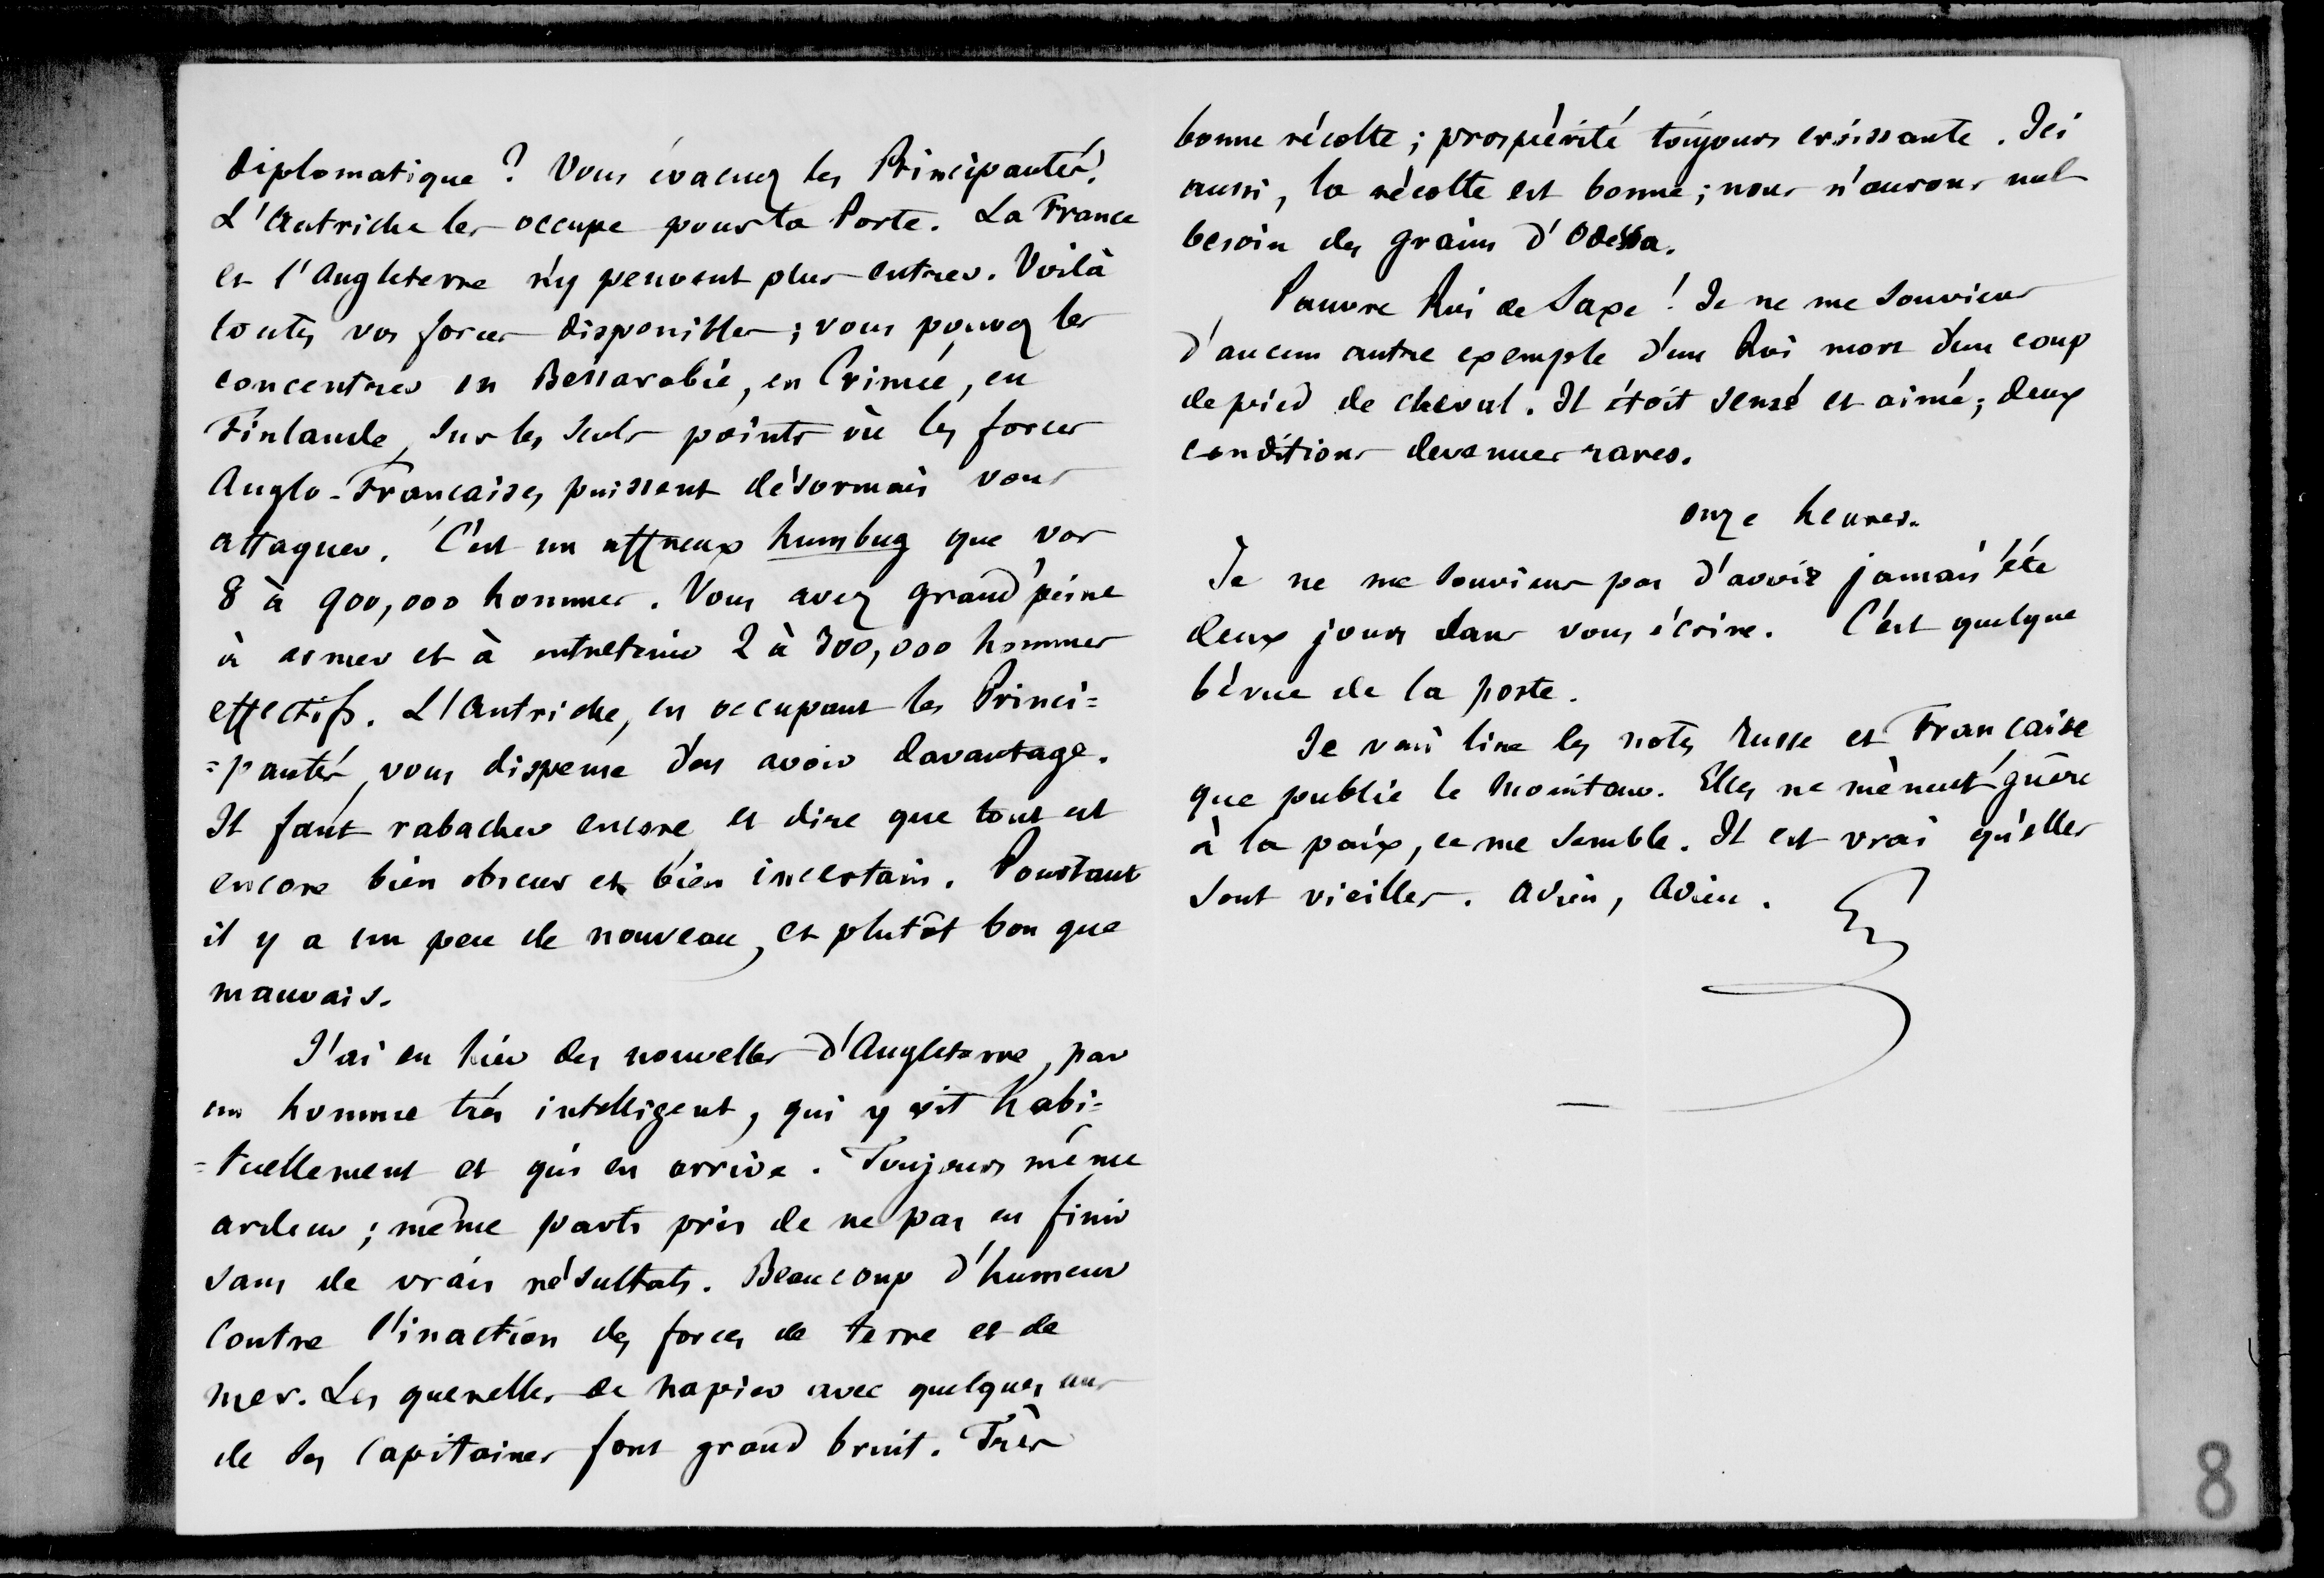 diplomatique ? Vous évacuez les Principautés.
L'Autriche les occupe pour la Porte. La France
et l'Angleterre n'y peuvent plus entrer. Voilà
toutes vos forces disponibles ; vous pouvez les
concentrer en Bessarabie, en Crimée, en
Finlande, sur les seuls points où les forces
Anglo-Françaises puissent désormais vous
attaquer. C'est un affreux humbug que vos
8 à 900,000 hommes. Vous avez grand'peine
à armer et à entretenir 2 à 300,000 hommes
effectifs. L'Autriche, en occupant les Princi=
=pautés, vous dispense d'en avoir davantage.
Il faut rabacher encore et dire que tout est
encore bien obscur et bien incertain. Pourtant
il y a un peu de nouveau, et plutôt bon que
mauvais.
J'ai eu hier des nouvelles d'Angleterre, par
un homme très intelligent, qui y vit habi=
=tuellement et qui en arrive. Toujours même
ardeur ; même parti pris de ne pas en finir
sans de vrais résultats. Beaucoup d'humeur
contre l'inaction des forces de terre et de
mer. Les querelles de Napier avec quelques uns
de ses Capitaines font grand bruit. Très
bonne récolte ; prospérité toujours croissante. Ici
aussi, la récolte est bonne ; nous n'aurons nul
besoin des grains d'Odessa.
Pauvre Roi de Saxe ! Je ne me souviens
d'aucun autre exemple d'un Roi mort d'un coup
de pied de cheval. Il étoit sensé et aimé ; deux
conditions devenues rares.
onze heures.
Je ne me souviens pas d'avoir jamais été
deux jours sans vous écrire. C'est quelque
bévue de la poste.
Je vais lire les notes Russe et Française
que publie le Moniteur. Elles ne mènent guère
à la paix, ce me semble. Il est vrai qu'elles
sont vieilles. Adieu, Adieu.
8